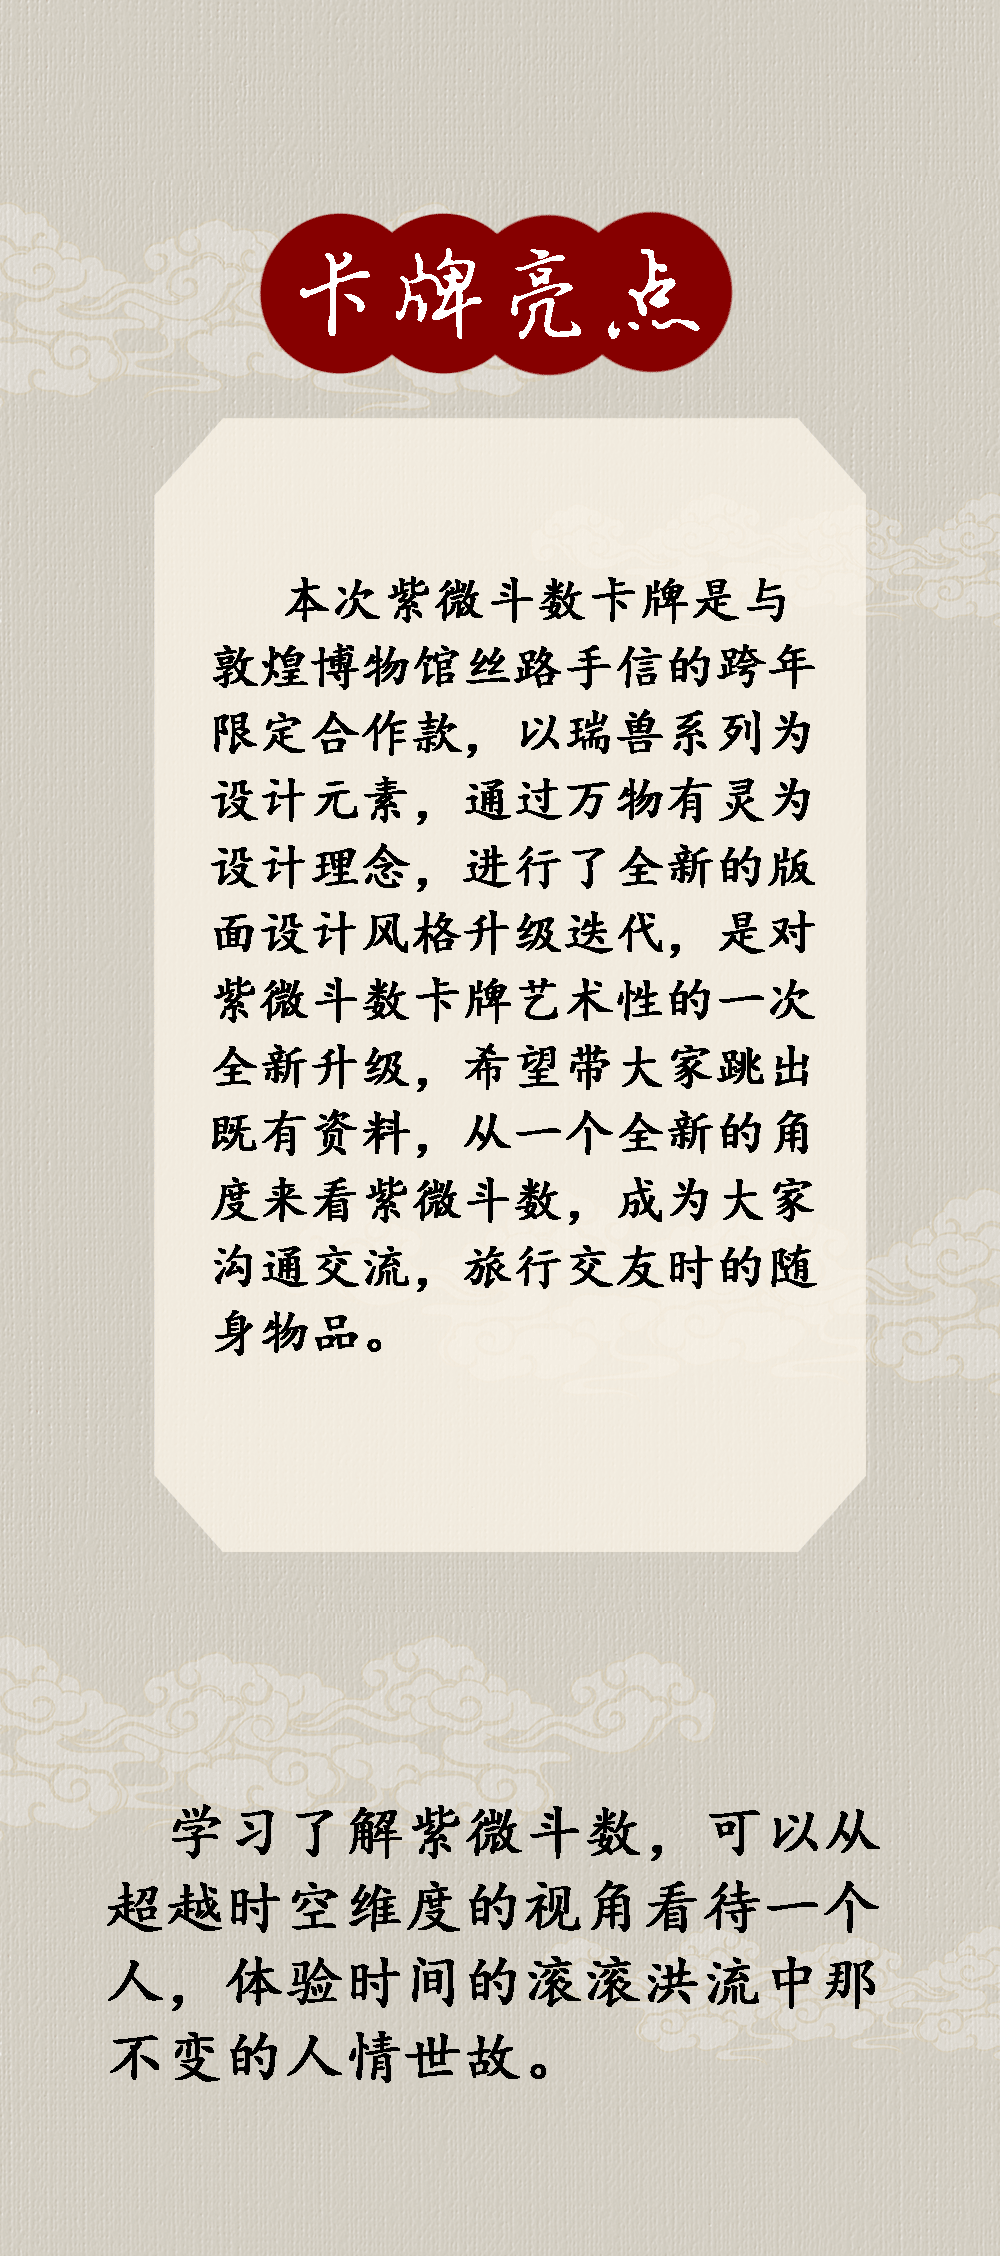 卡牌亮点
本次紫微斗数卡牌是与
敦煌博物馆丝路手信的跨年
限定合作款，以瑞兽系列为
设计元素，通过万物有灵为
设计理念，进行了全新的版
面设计风格升级迭代，是对
紫微斗数卡牌艺术性的一次
全新升级，希望带大家跳出
既有资料，从一个全新的角
度来看紫微斗数，成为大家
沟通交流，旅行交友时的随
身物品。
学习了解紫微斗数，可以从
超越时空维度的视角看待一个
人，体验时间的滚滚洪流中那
不变的人情世故。